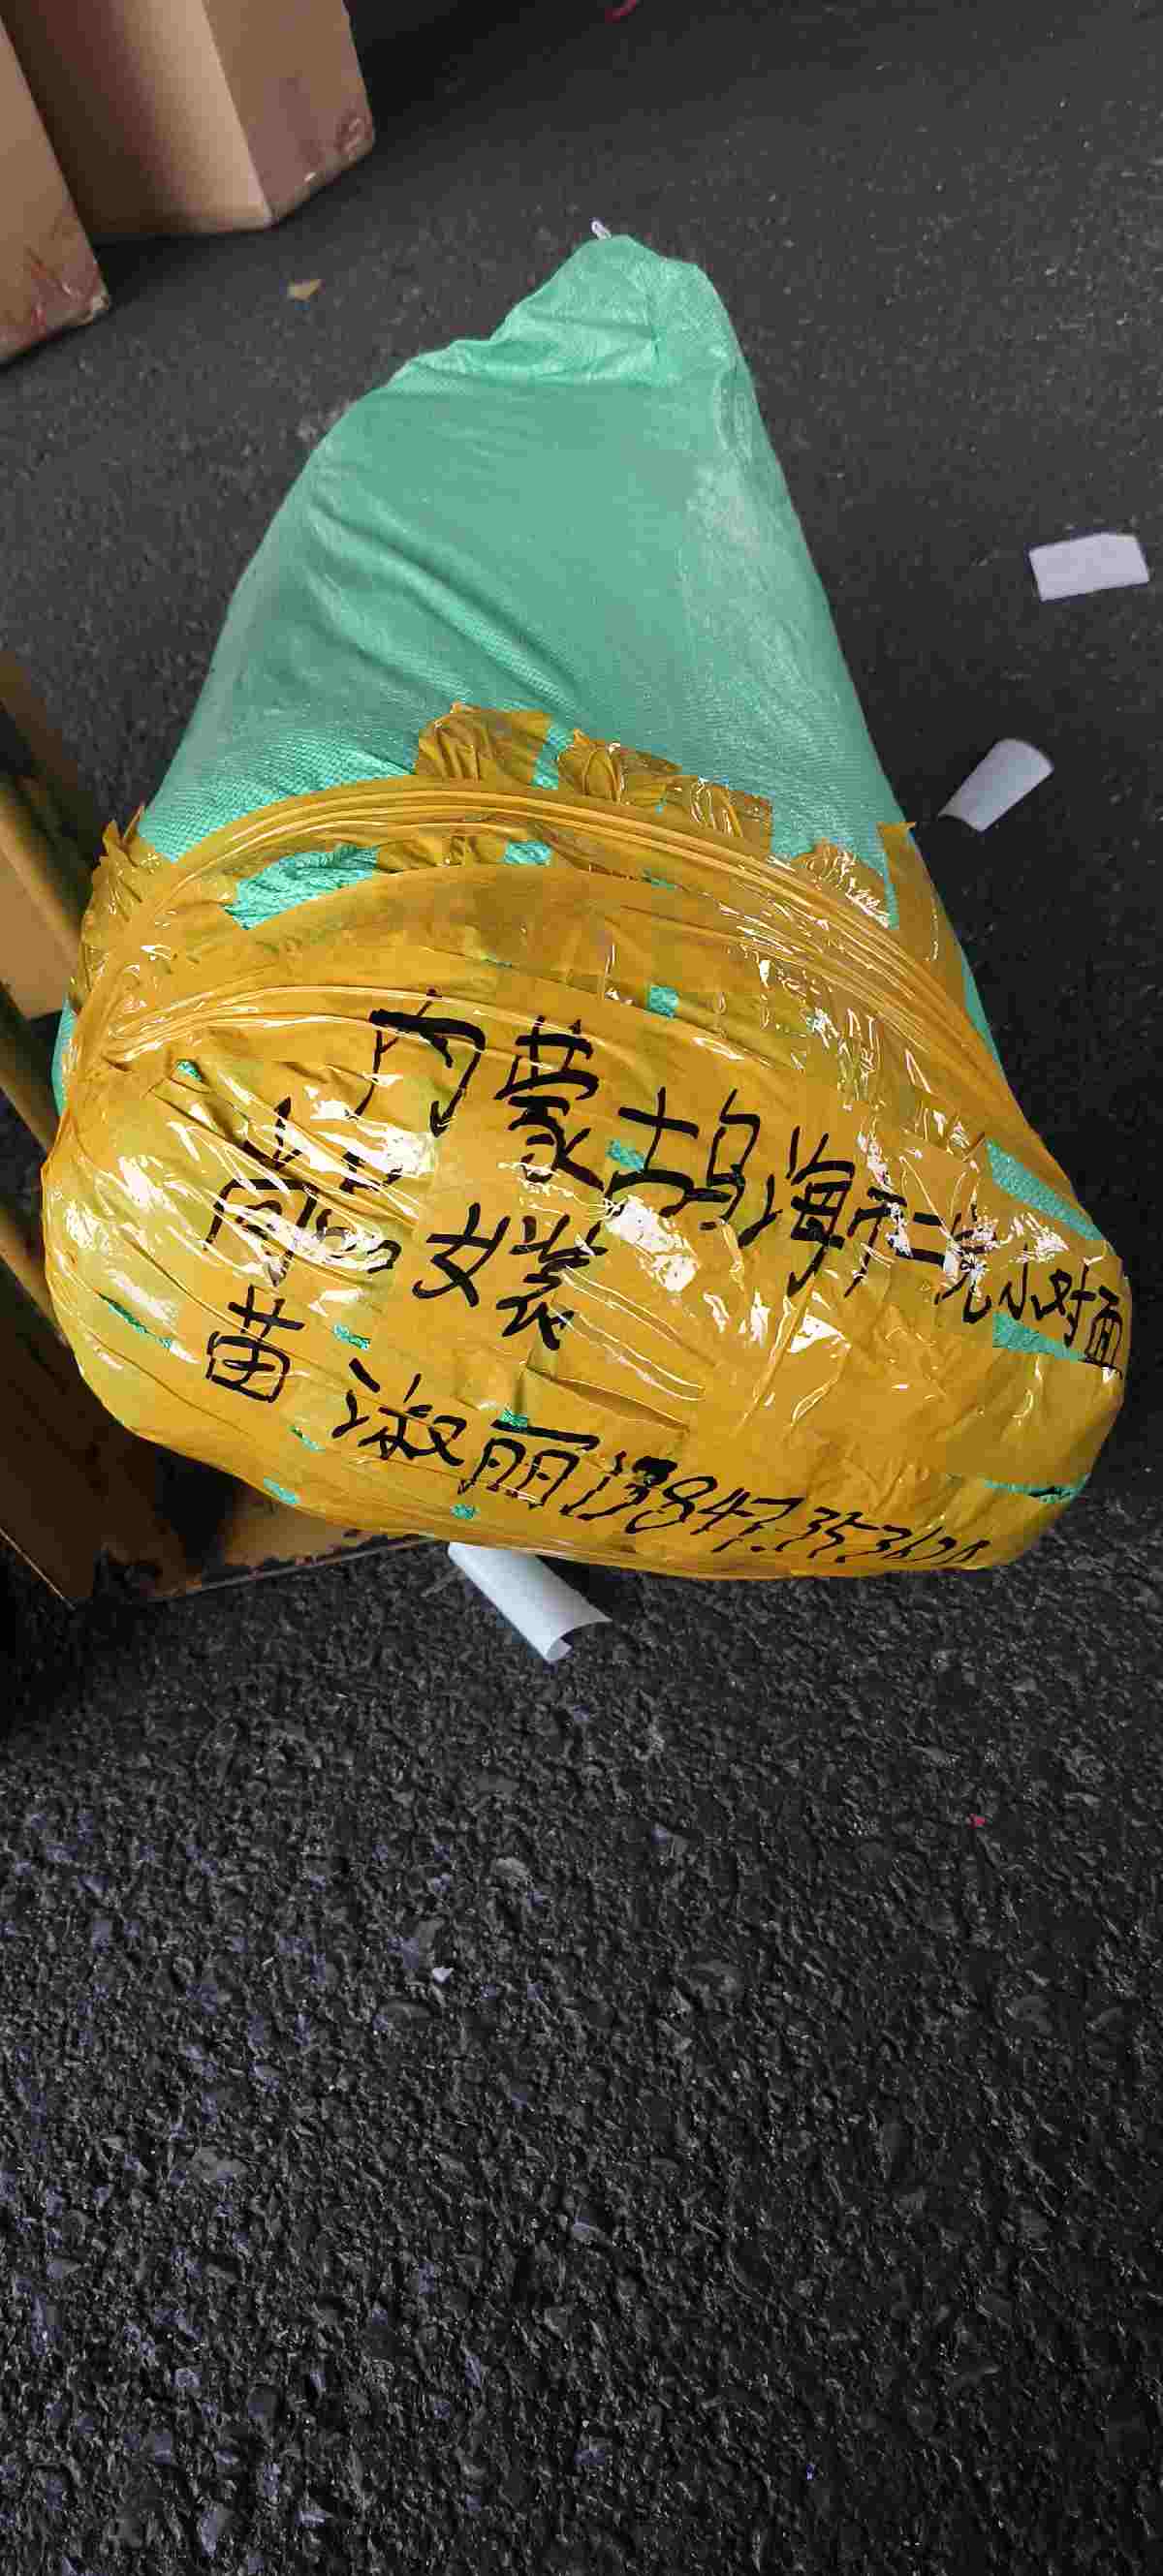 内蒙古乌海市二完小对面
女装
苗淑丽 13847353620